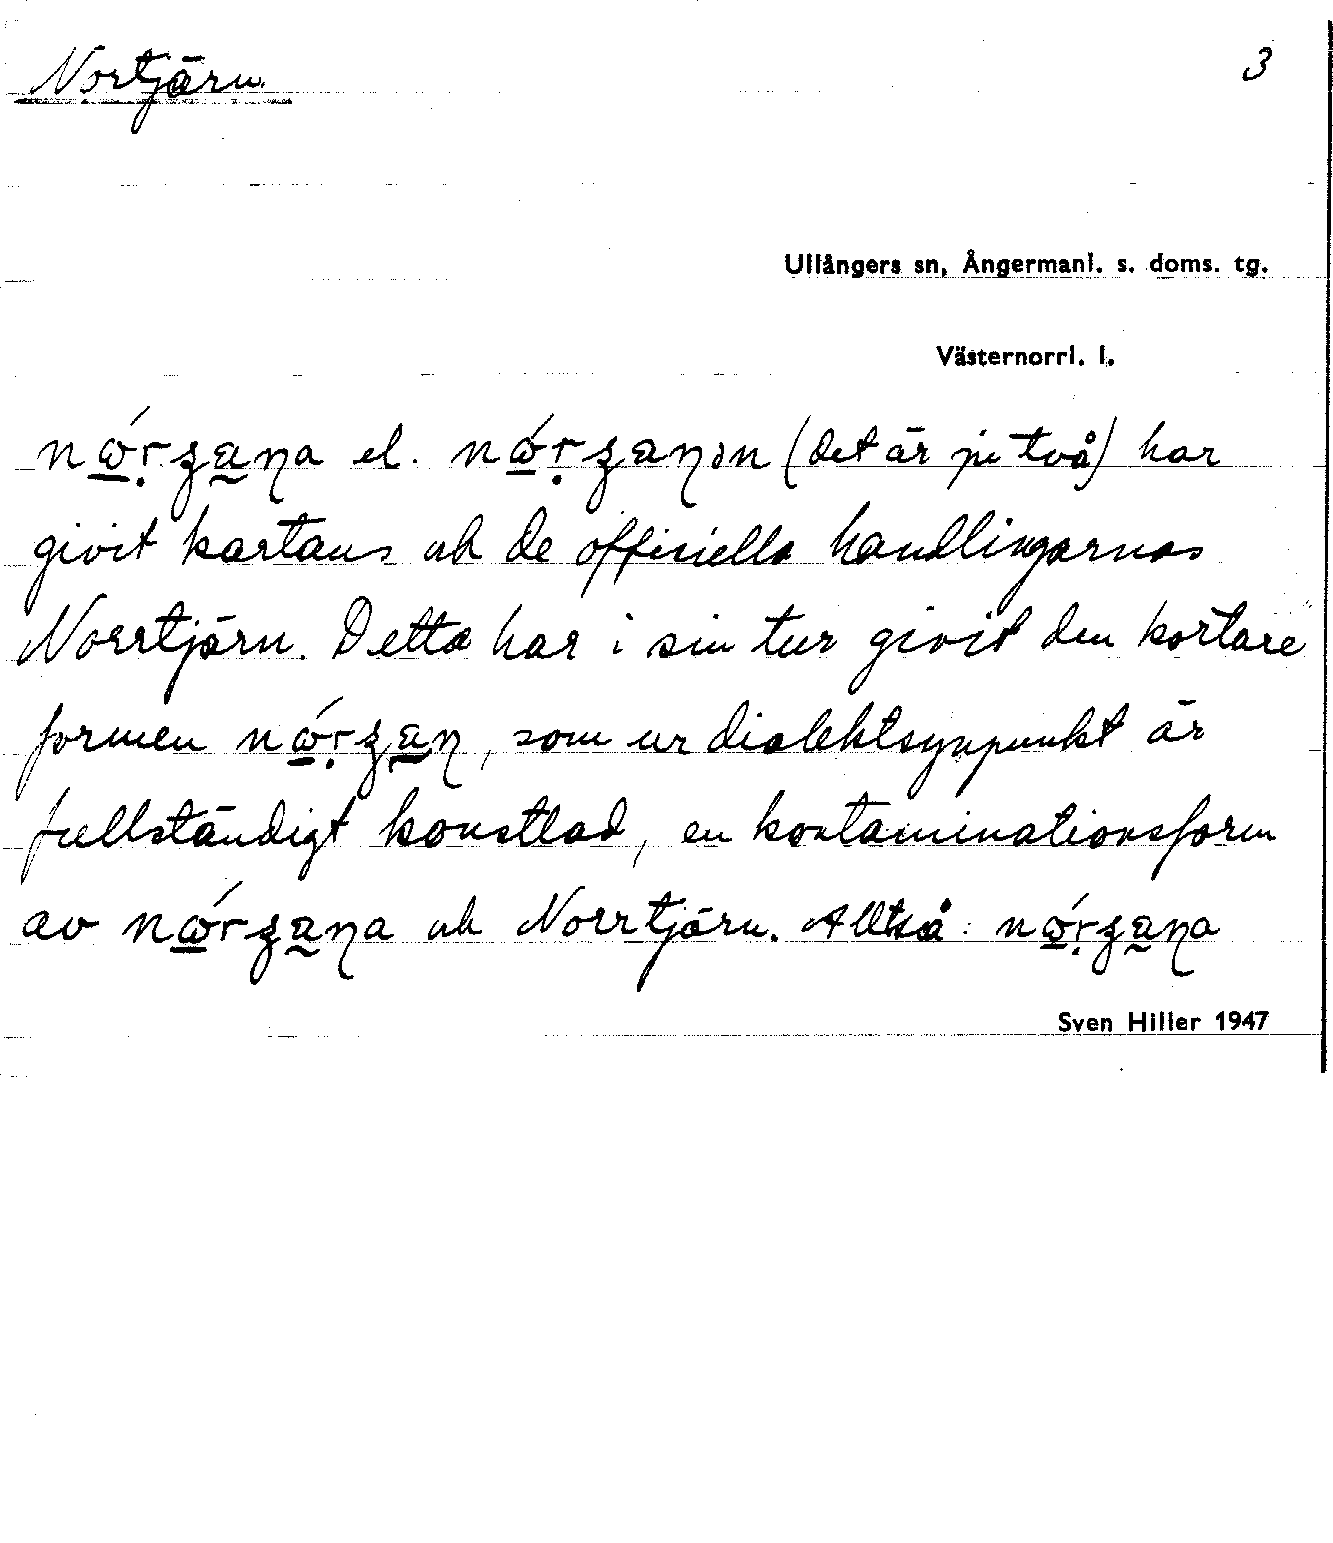 Nortjärn. 3
Ullångers sn, Ångermanl. s. doms. tg.
Västernorrl. l.
el. (det är ju två) har
givit kartans och de officiella handlingarnas
Norrtjärn. Detta har i sin tur givit den kortare
formen , som ur dialektsynpunkt är
fullständigt konstlad, en kontaminationsform
av och Norrtjärn. Alltså:
Sven Hiller 1947